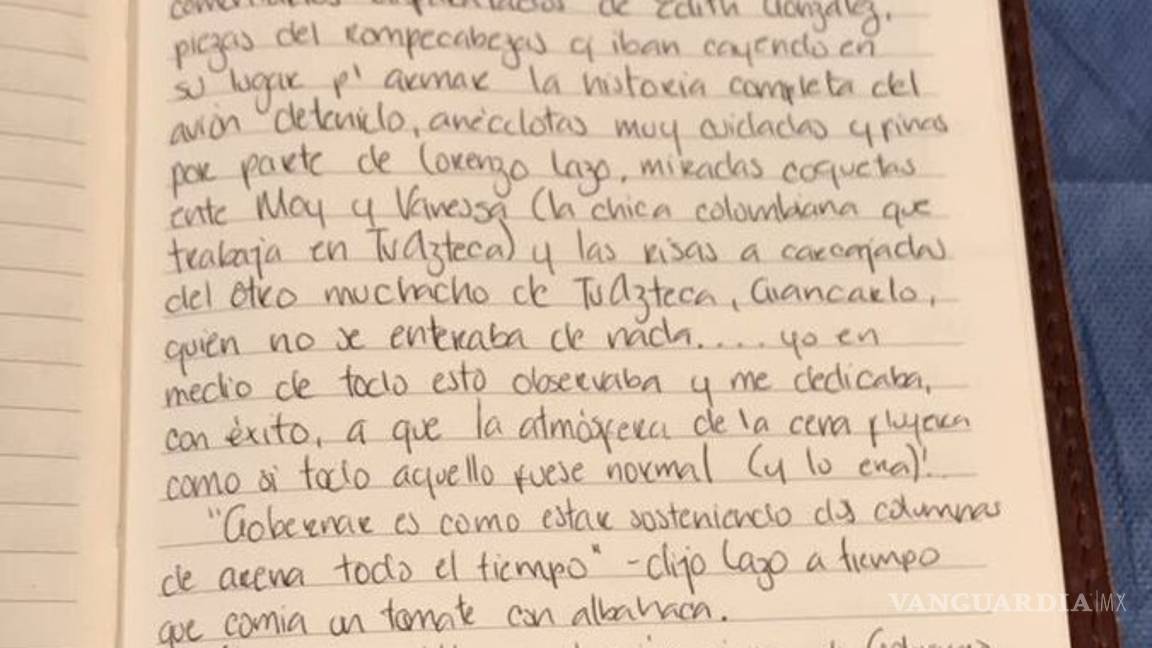 de Edith González,
piezas del rompecabezas q iban cayendo en
su lugar p' armar la historia completa del
avión detenido, anécdotas muy cuidadas y finas
por parte de Lorenzo Lazo, miradas coquetas
ente Moy y Vanessa (la chica colombiana que
trabaja en TvAzteca) y las risas a carcajadas
del otro muchacho de TvAzteca, Giancarlo,
quién no se enteraba de nada.... yo en
medio de todo esto observaba y me dedicaba,
con éxito, a que la atmósfera de la cena fluyera
como si todo aquello fuese normal (y lo era)!
"Gobernar es como estar sosteniendo dos columnas
de arena todo el tiempo" -dijo Lazo a tiempo
que comía un tomate con albahaca.
VANGUARDIA|MX